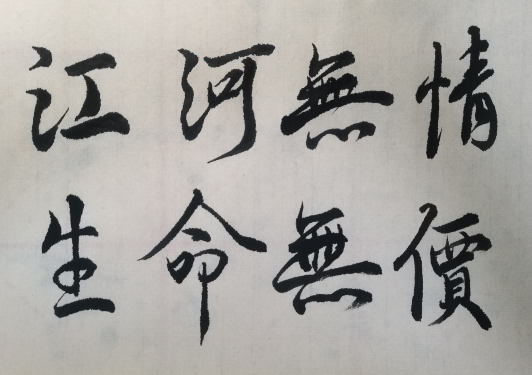 江河無情
生命無價